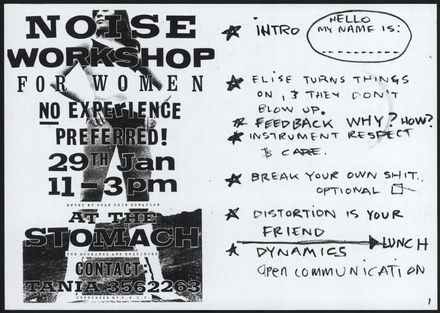 NOISE
WORKSHOP
FOR WOMEN
NO EXPERIENCE
PREFERRED!
29TH Jan
11-3pm
ENTRY BY GOLD COIN DONATION
AT THE
STOMACH
FOR BOOKINGS AND ENQUIRIES
CONTACT:
TANIA 3562263
HELLO
MY NAME IS:
INTRO
ELISE TURNS THINGS
ON, & THEY DON'T
BLOW UP.
FEEDBACK WHY? HOW?
INSTRUMENT RESPECT
& CARE.
BREAK YOUR OWN SHIT..
OPTIONAL
DISTORTION IS YOUR
FRIEND
LUNCH
DYNAMICS
OPEN COMMUNICATION